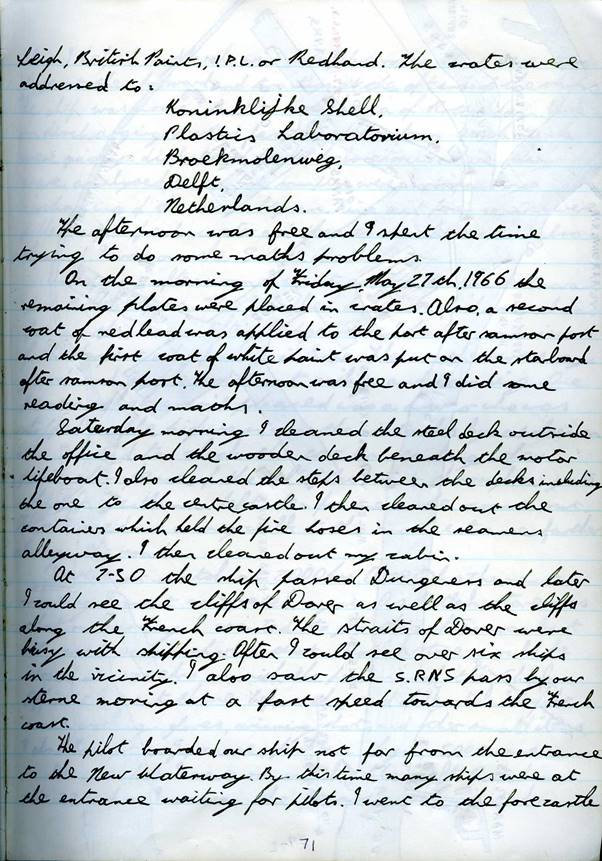 Leigh, British Paints, I.P.L. or Redhand. The crates were
addressed to:
Koninklijke Shell,
Plastics Laboratorium,
Broekmolenweg,
Delft,
Netherlands.
The afternoon was free and I spent the time
trying to do some maths problems.
On the morning of Friday, May 27th, 1966 the
remaining plates were placed in crates. Also, a second
coat of red lead was applied to the port after samson post
and the first coat of white paint was put on the starboard
after samson post. The afternoon was free and I did some
reading and maths.
Saturday morning I cleaned the steel deck outside
the office and the wooden deck beneath the motor
lifeboat. I also cleared the steps between the decks including
the one to the centrecastle. I then cleaned out the
containers which held the fire hoses in the seamens
alleyway. I then cleaned out my cabin.
At 7-30 the ship passed Dungeness and later
I could see the cliffs of Dover as well as the cliffs
along the French coast. The straits of Dover were
busy with shipping. Often I could see over six ships
in the vicinity. I also saw the S.RNS pass by our
sterne moving at a fast speed towards the French
coast.
The pilot boarded our ship not far from the entrance
to the New Waterway. By this time many ships were at
the entrance waiting for pilots. I went to the forecastle
71